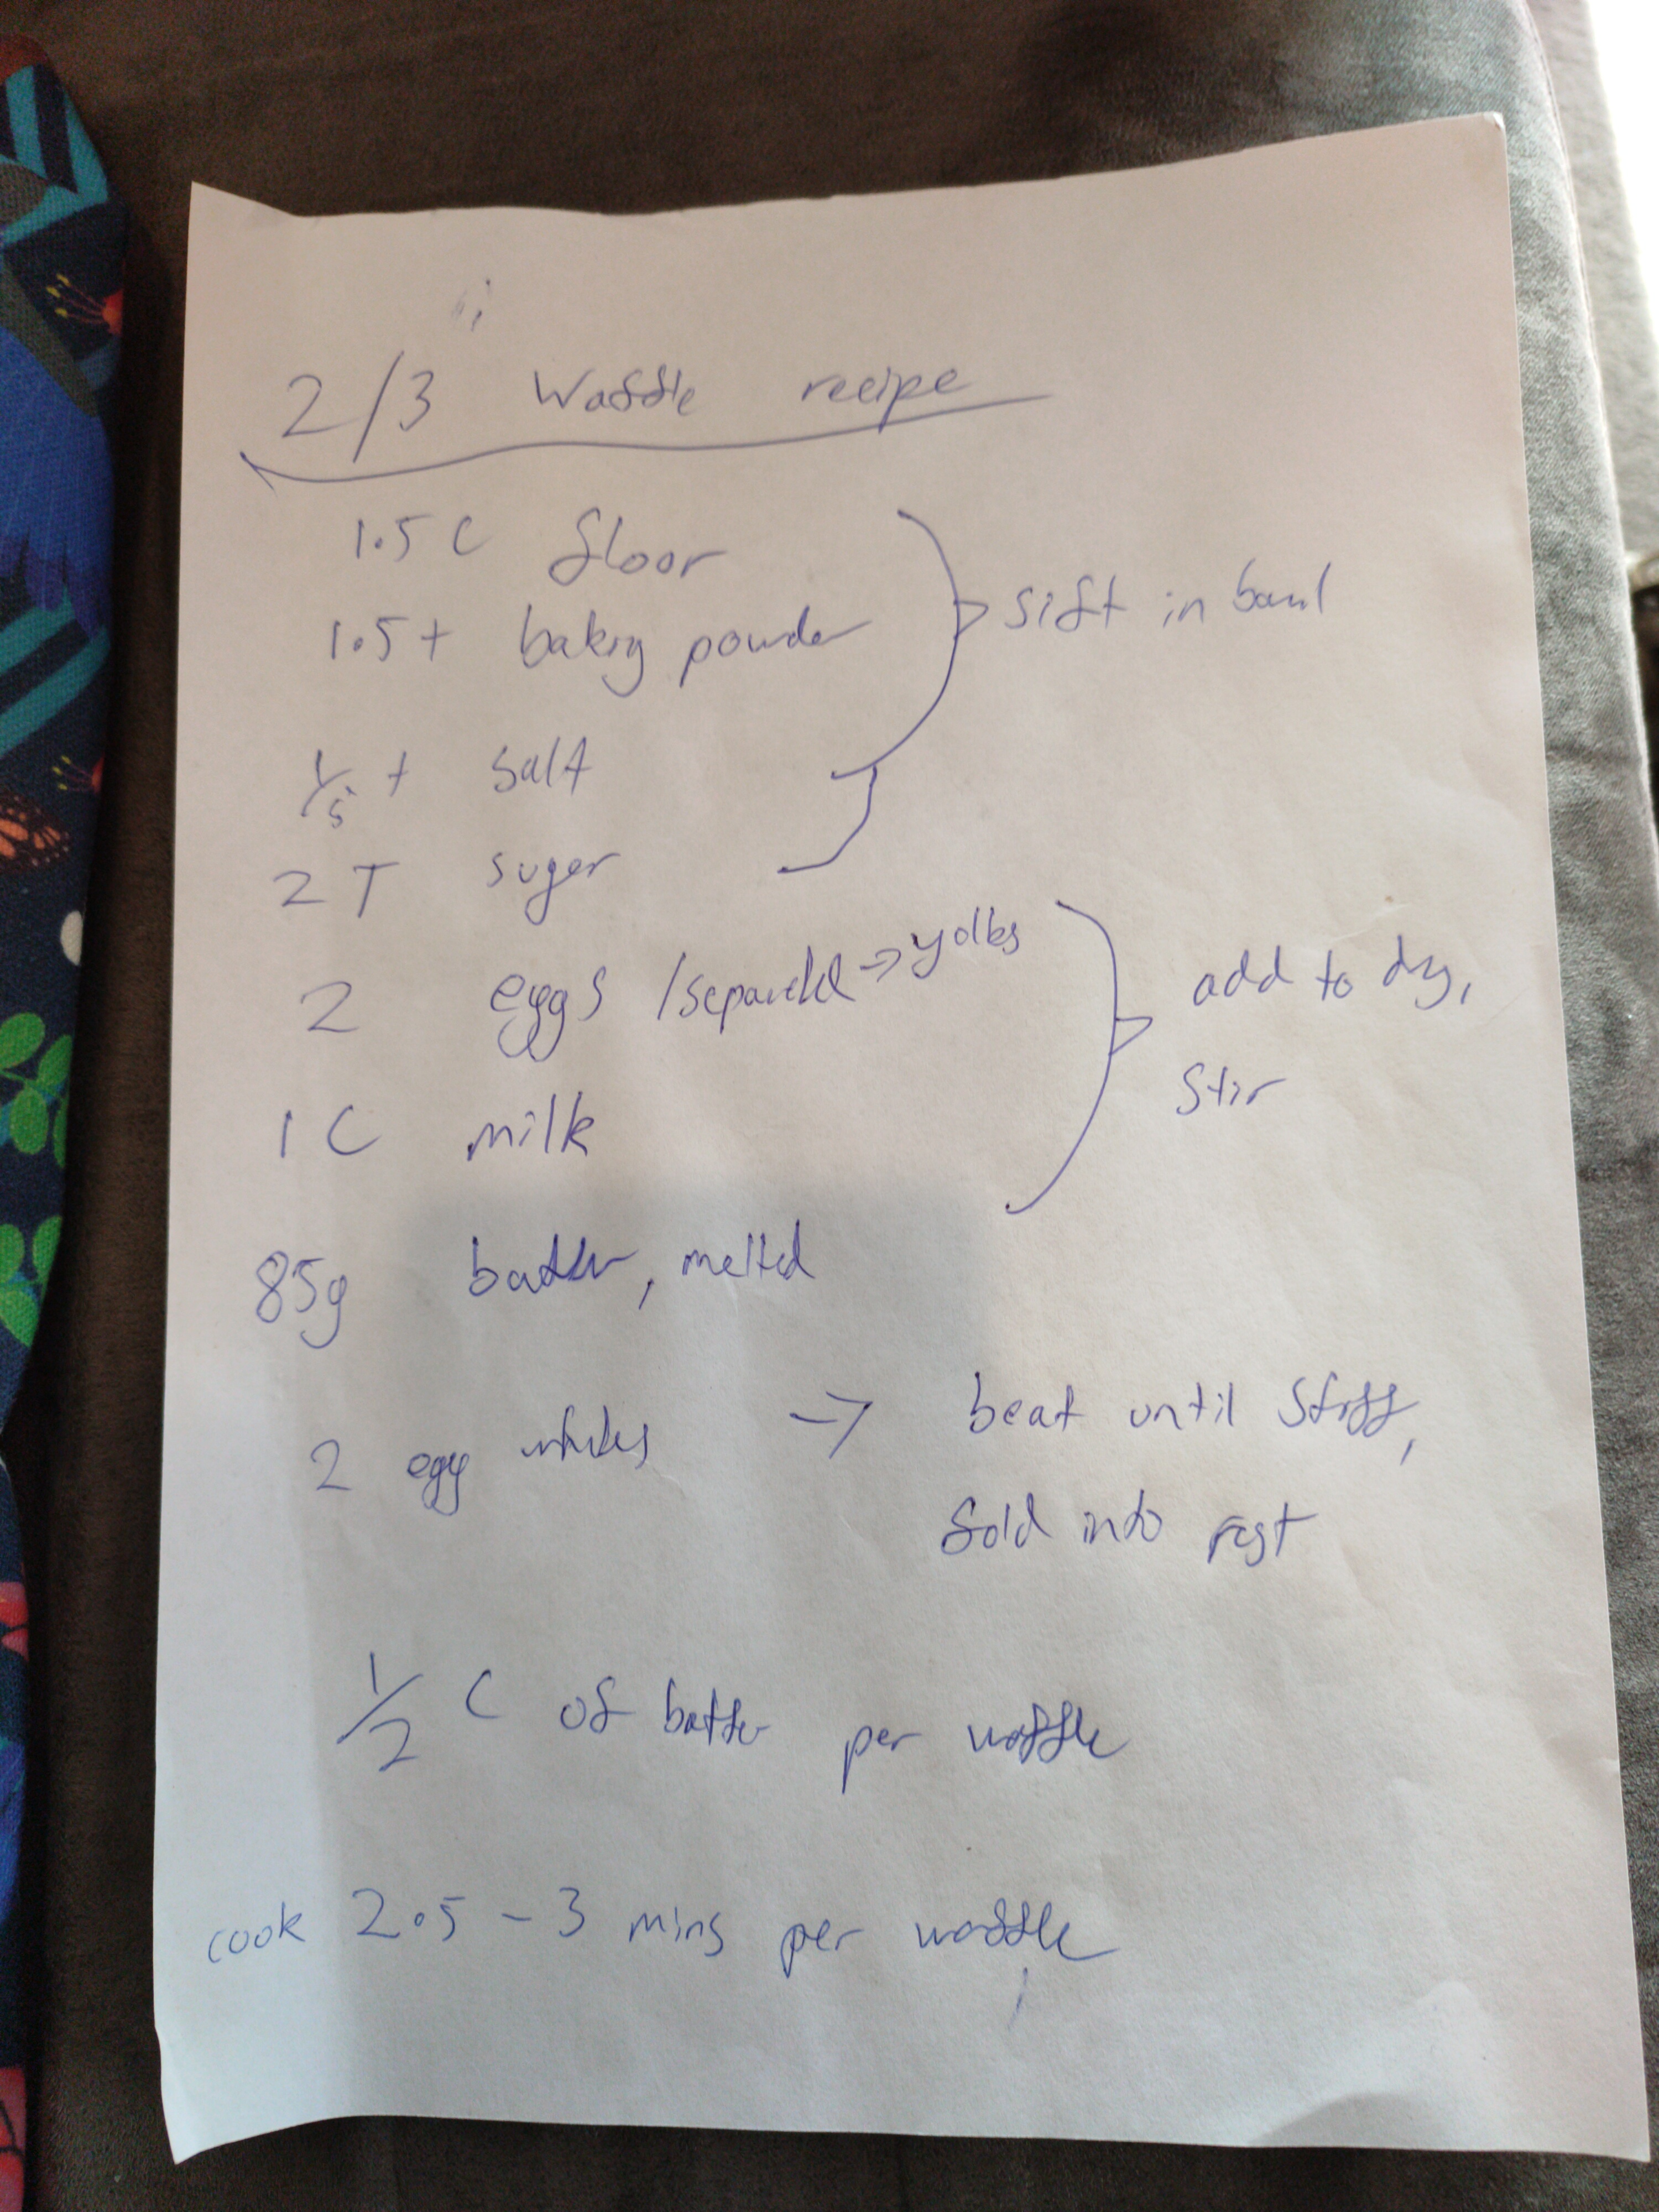 2/3 Waffle recipe
1.5 C floor
1.5 t baking powder
sift in bowl
1/5 t salt
2 T suger
2 eggs /separated → yolks
add to dry,
stir
1 C milk
85g butter, melted
2 egg whites → beat until stiff,
fold into rest
1/2 C of batter per waffle
cook 2.5 - 3 mins per waffle